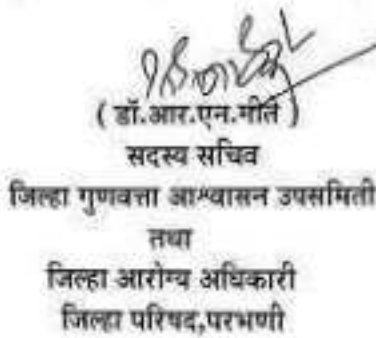 ( डॉ.आर.एन.गीते )
सदस्य सचिव
जिल्हा गुणवत्ता आश्वासन उपसमिती
तथा
जिल्हा आरोग्य अधिकारी
जिल्हा परिषद,परभणी